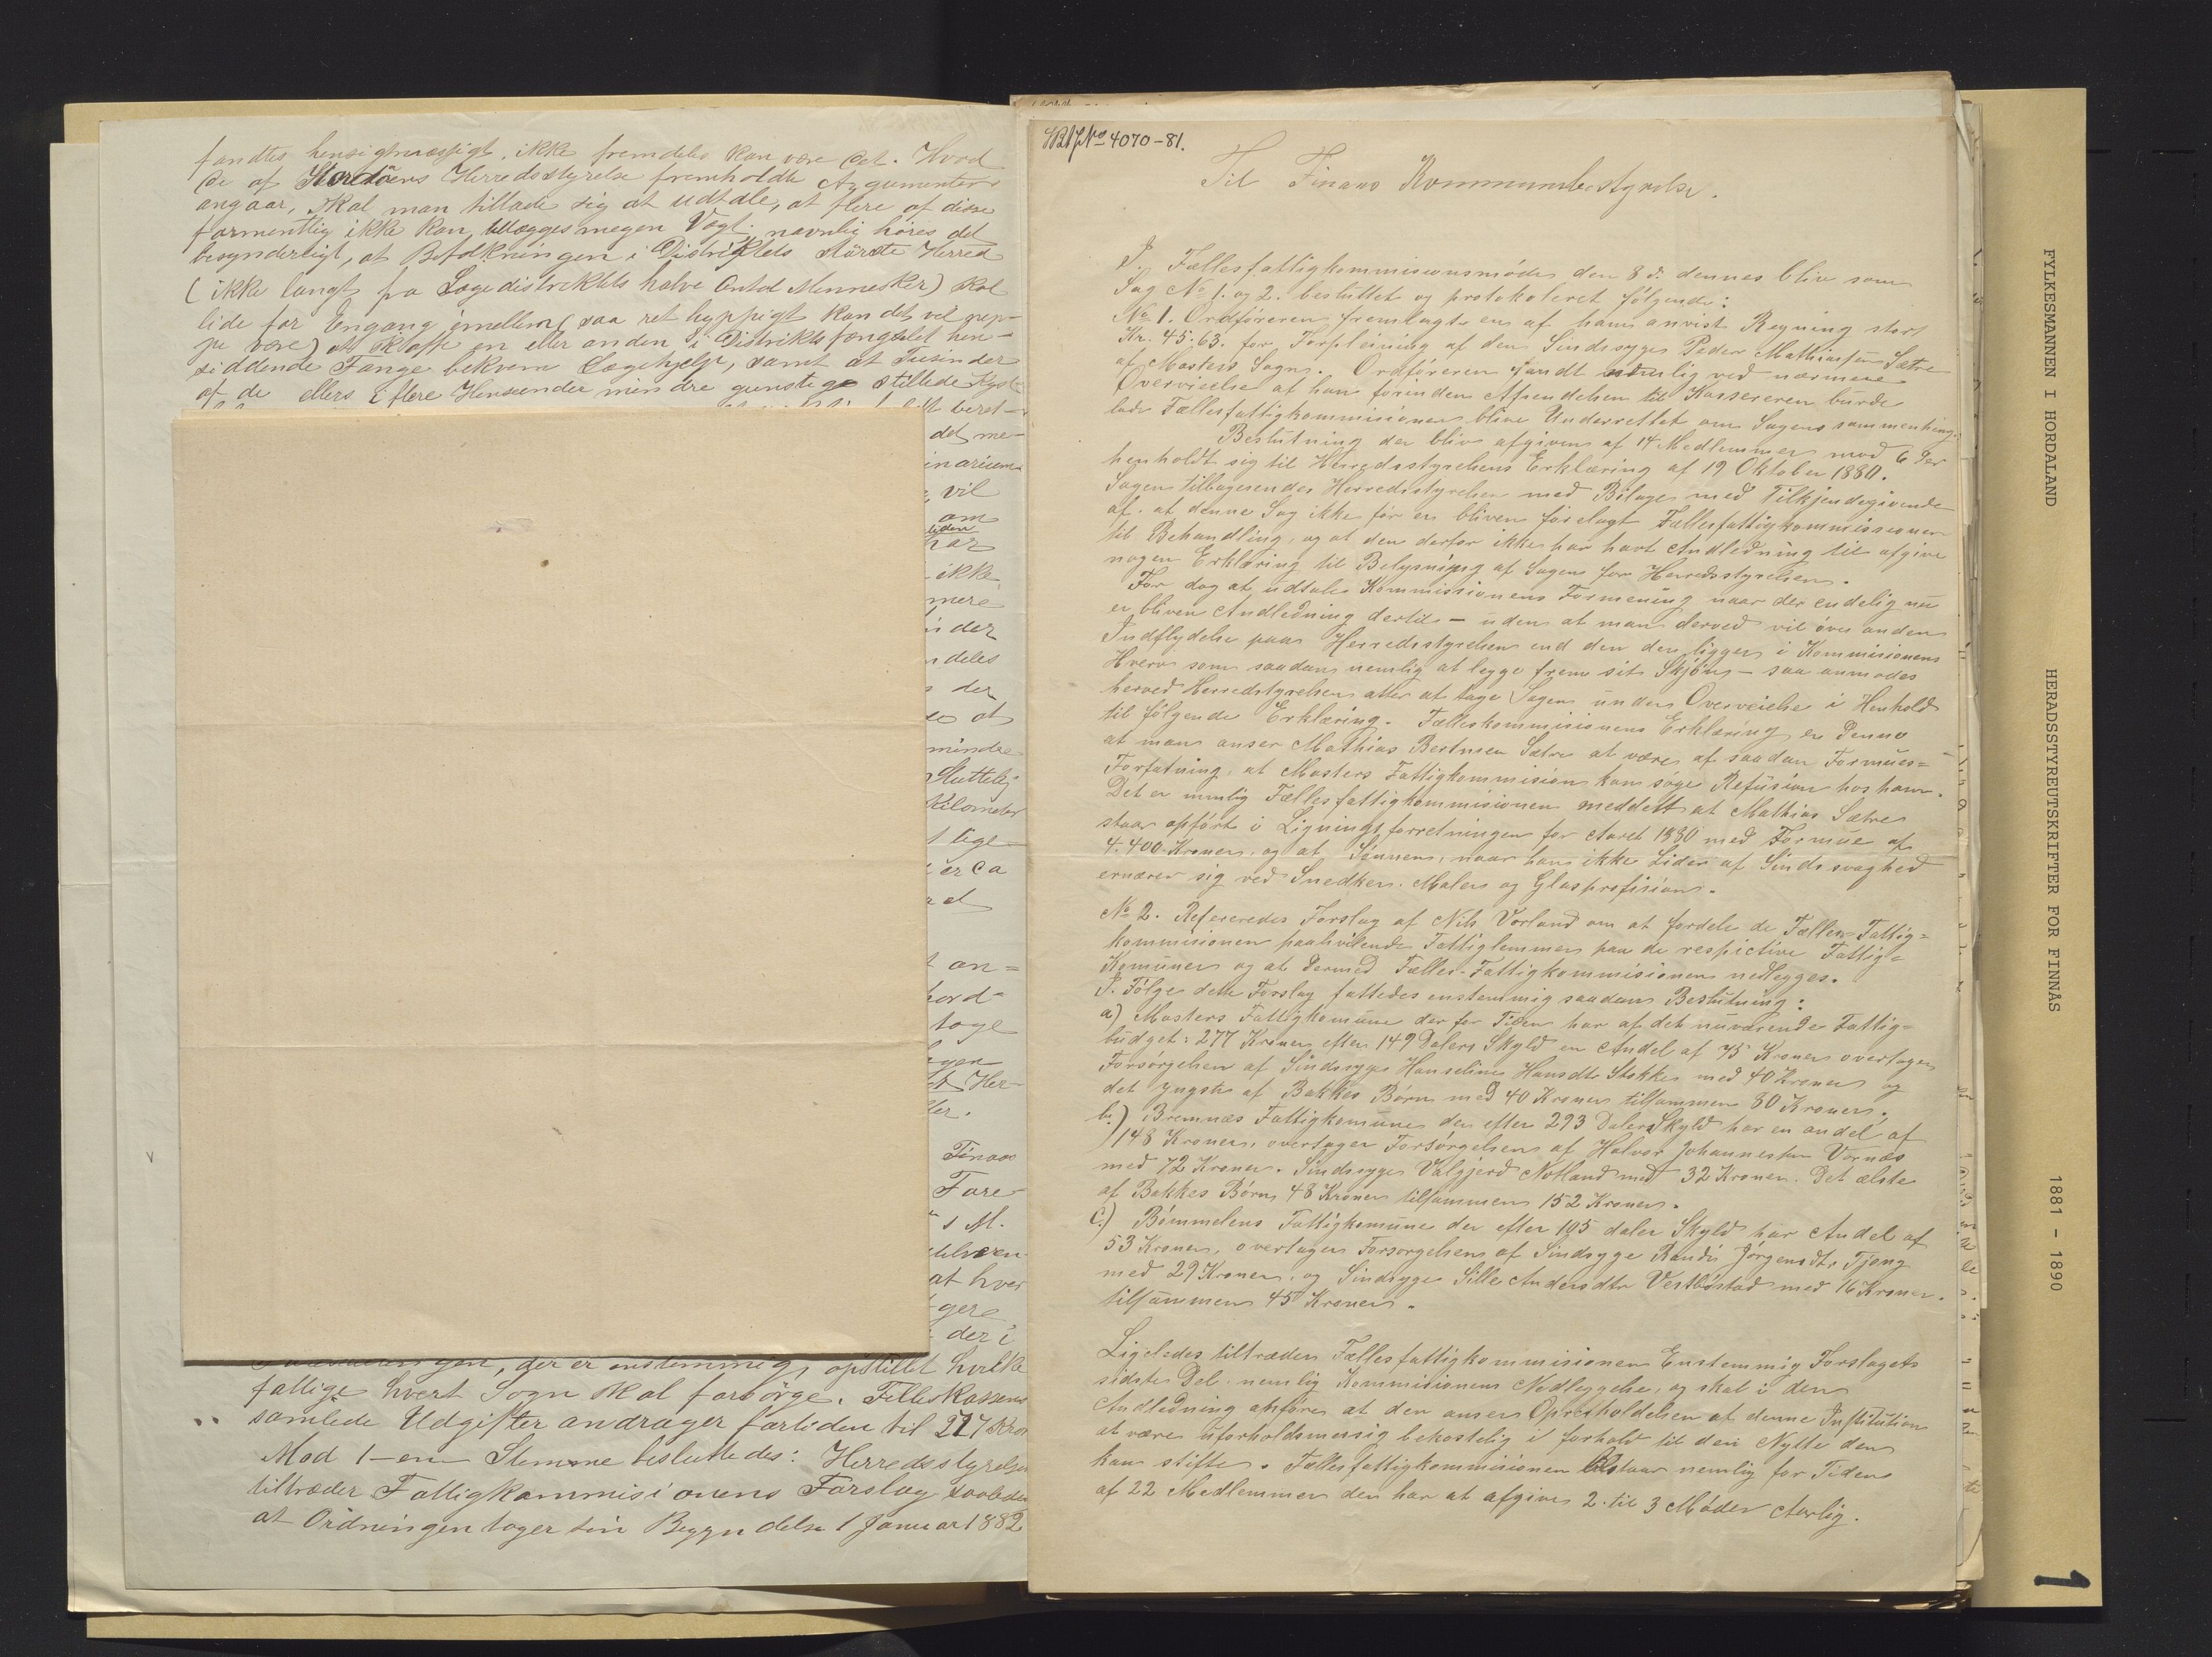 fandtes hensigtmæssigt, ikke fremdeles kan være det. Hvad
de af Stordøens Herredsstyrelse fremholdte Argumenter
angaar, skal man tillade sig at udtale, at flere af disse
formentlig ikke kan tillægges megen Vægt; navnlig høres det
besynderligt, at Befolkningen i Distriktets største Herred
(ikke langt fra Lægedistriktets halve Antal Mennesker) skal
lide for Engang imellem (saa ret hyppigt kan det vel nep-
pe være) at skaffe en eller anden i Distriktsfængslet hen-
siddende Fange bekvem Lægehjælp, samt at Tusinder
af de ellers i flere Henseender mindre gunstige stillede Kyst
beret-
det me-
inarium
vil
om
tiden
har
ikke
mere
der
deles
der
at
mindre
Sluttelig
Kilometer
lige-
er ca
ad
an=
hord-
tage
Her-
ler.
Finaas
Fore-
1 M.
at hver
gere
der i
der er enstemmig, opstillet hvilke
fattige hvert Sogn skal forsørge. Felleskassens
samlede Udgifter andrager fortiden til 277 Kro
Mod 1-en Stemme besluttedes: Herredsstyrelsen
tiltræder Fattigkommisionens Forslag saaledes
at Ordningen tager sin Begyndelse 1 Januar 1882
No 4070-81.
Til Finaas Kommunebestyrelse.
I Fællesfattigkommisionsmøde den 8 d. dennes blev som
Sag No 1. og 2. besluttet og protokoleret følgende:
No 1. Ordføreren fremlagte en af ham anvist Regning stor
Kr. 45.63. for Forpleining af den Sindssyge Peder Mathiassen Sætre
af Mosters Sogn. Ordføreren fandt nemlig ved nærmere
Overveielse at han forinden Afsendelsen til Kassereren burde
lade Fællesfattigkommisionen blive Underrettet om Sagens sammenheng.
Beslutning der blev afgiven af 14 Medlemmer mod 6 der
henholdt sig til Herredsstyrelsens Erklæring af 19 Oktober 1880.
Sagen tilbagesendes Herredsstyrelsen med Bilage med Tilkjendegivende
af. at denne Sag ikke før er bleven forelagt Fællesfattigkommissionen
til Behandling, og at den derfor ikke har havt Andledning til afgive
nogen Erklæring til Belysning af Sagen for Herredsstyrelsen.
For dog at udtale Kommissionens Formening naar der endelig nu
er bleven Andledning dertil - uden at man derved vil øve anden
Indflydelse paa Herredsstyrelsen end den der ligger i Kommisionens
Hverv som saadan nemlig at legge frem sit Skjøn - saa anmodes
herved Herredstyrelsen atter at tage Sagen under Overveielse i Henhold
til følgende Erklæring. Felleskommisionens Erklæring er denne
at man anser Mathias Bertusen Sætre at være af saadan Formues=
Forfatning, at Mosters Fattigkommision kan søge Refusion hos ham.
Det er nemlig Fællesfattigkommisionen meddelt at Mathias Sætre
staar opført i Ligningsforretningen for Aaret 1880 med Formue af
4.400 Kroner, og at Sønnen, naar han ikke Lider af Sindssvaghed
ernærer sig ved Snedker. Maler og Glasprofision.
No 2. Refereredes Forslag af Nils Vorland om at fordele de Fælles-Fattig=
kommisionen paahvilende Fattiglemmer paa de respictive Fattig=
Komuner og at dermed Fælles-Fattigkommisionen nedlegges.
I. Følge dette Forslag fattedes enstemmig saadan Beslutning:
a) Mosters Fattigkomune der for Tiden har af det nuværende Fattig=
budget: 277 Kroner efter 149 Dalers Skyld en Andel af 75 Kroner overtager
Forsørgelsen af Sindssyge Hanseline Hansdtr Stokke med 40 Kroner og
det yngste af Bakkes Børn med 40 Kroner tilsammen 80 Kroner.
b.) Bremnæs Fattigkomune der efter 293 Daler Skyld har en andel af
148 Kroner, overtager Forsørgelsen af Halvor Johannessen Vornæs
med 72 Kroner. Sindssyge Valgjerd Notland med 32 Kroner. Det ælste
af Bakkes Børn 48 Kroner tilsammen 152 Kroner.
c.) Bømmelens Fattigkomune der efter 105 daler Skyld har Andel af
53 Kroner, overtager Forsorgelsen af Sindsyge Randi Jørgensdtr Tjong
med 29 Kroner, og Sindsyge Sille Andersdtr Vestbøstad med 16 Kroner.
tilsammen 45 Kroner.
Ligeledes tiltræder Fællesfattigkommisionen Enstemmig Forslagets
sidste Del. nemlig Kommisionens Nedleggelse, og skal i den
Andledning anføres at den anser Opretholdelsen af denne Institution
at være uforholdsmessig bekostelig i forhold til den Nytte den
kan stifte. Fællesfattigkommisionen bestaar nemlig for Tiden
af 22 Medlemmer der har at afgives 2. til 3 Møder Aarlig.
FYLKESMANNEN I HORDALAND HERADSSTYREUTSKRIFTER FOR FINNÅS 1881 - 1890
1